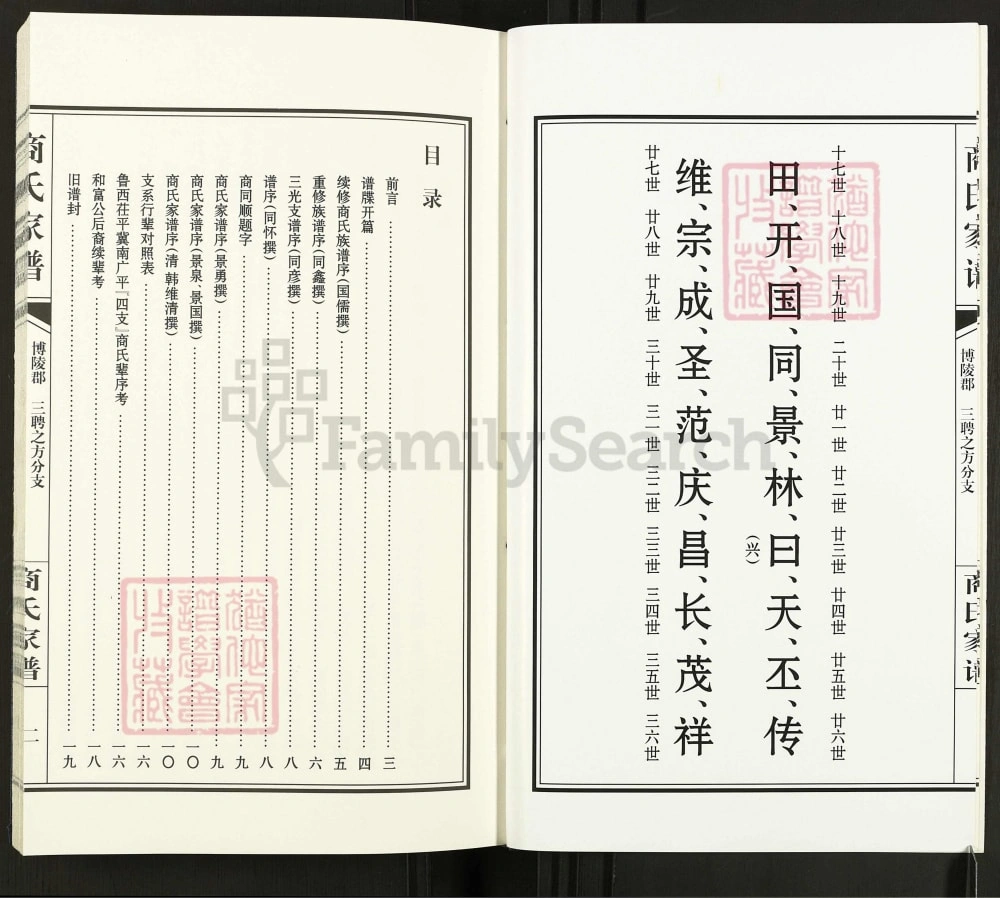 商氏家谱
博陵郡 三聘之方分支
商氏家谱
十七世 十八世 十九世 二十世 廿一世 廿二世 廿三世 廿四世 廿五世 廿六世
田、开、国、同、景、林、曰、天、丕、传
(兴)
廿七世 廿八世 廿九世 三十世 三一世 三二世 三三世 三四世 三五世 三六世
维、宗、成、圣、范、庆、昌、长、茂、祥
目录
前言 三
谱牒开篇 四
续修商氏族谱序(国儒撰) 五
重修族谱序(同鑫撰) 六
三光支谱序(同彦撰) 八
谱序(同怀撰) 八
商同顺题字 九
商氏家谱序(景勇撰) 九
商氏家谱序(景泉、景国撰) 一〇
商氏家谱序(清 韩维清撰) 一〇
支系行辈对照表 一六
鲁西茌平冀南广平『四支』商氏辈序考 一六
和富公后裔续辈考 一八
旧谱封 一九
商氏家谱
博陵郡 三聘之方分支
商氏家谱
二
FamilySearch